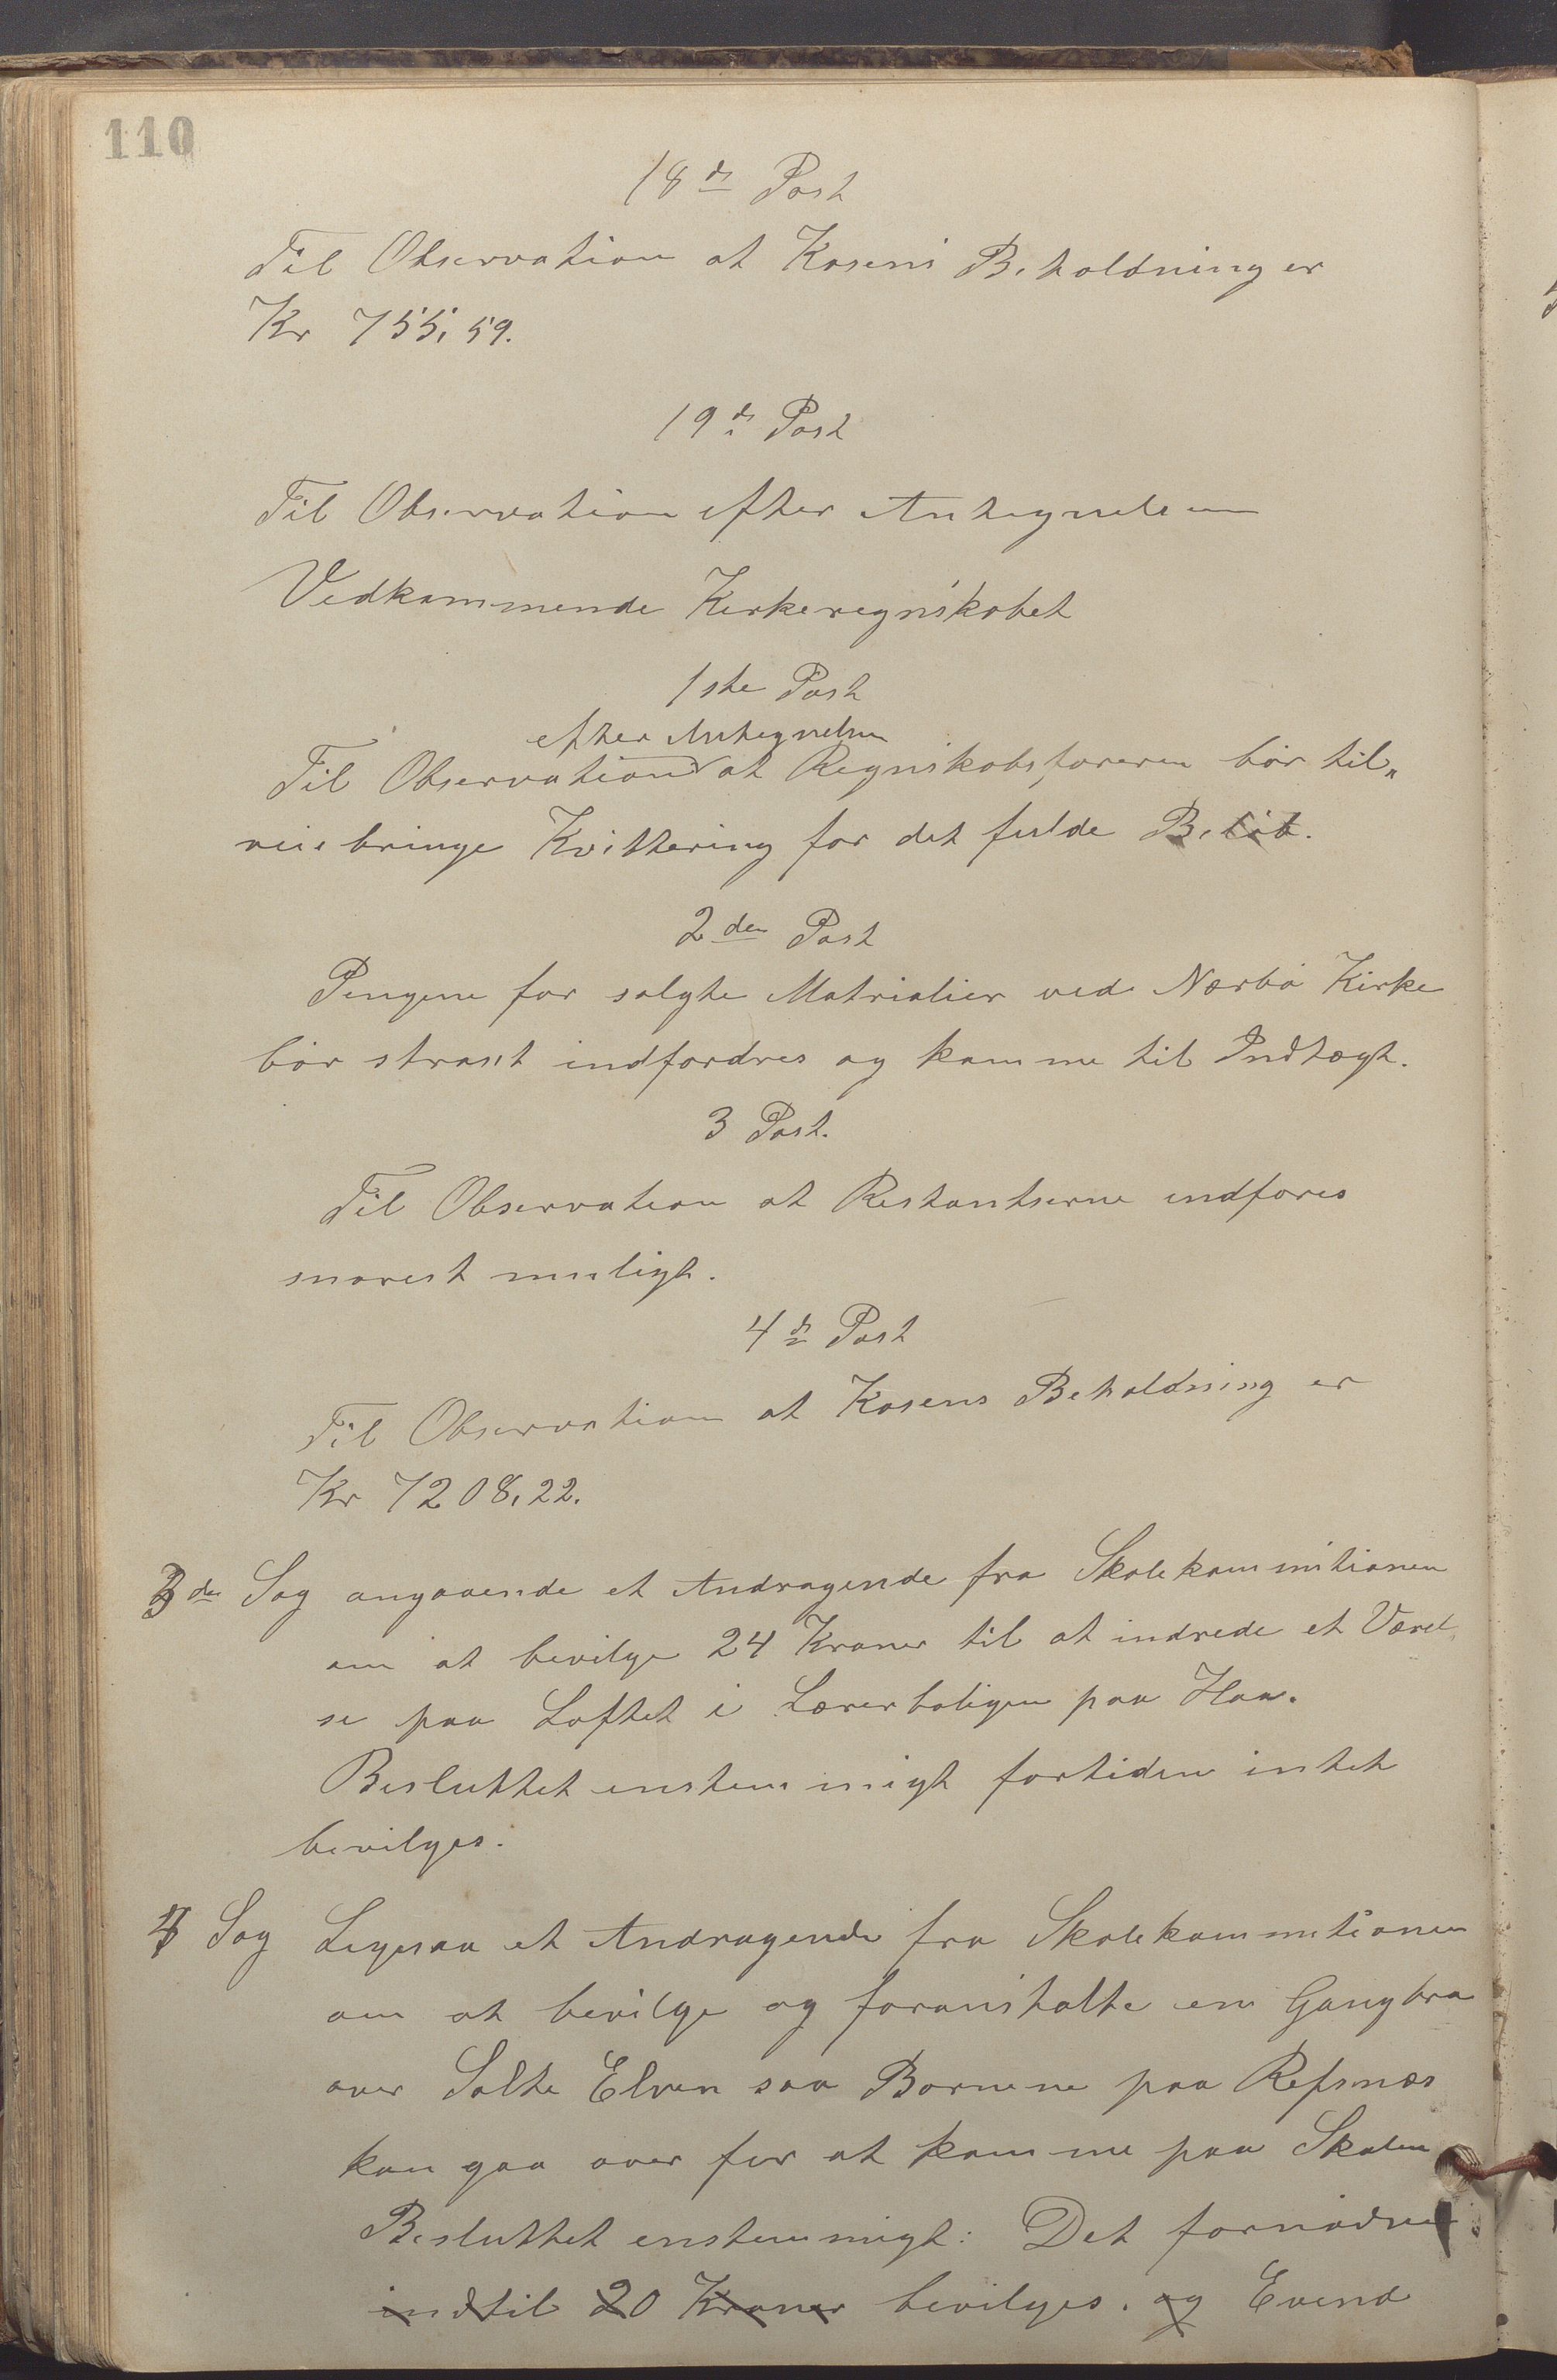 110
18de Post
Til Observation at Kasens Beholdning er
Kr 755,59.
19de Post
Til Observation efter Antegnelsen
Vedkommende Kirkeregnskabet
1ste Post
efter Antegnelsen
Til Observation at Regnskabsføreren bør til„
veiebringe Kvittering for det fulde Beløb.
2den Post
Pengene for solgte Matrialier ved Nærbø Kirke
bør straxt indfordres og komme til Indtægt.
3 Post.
Til Observation at Restantserne indføres
snarest muligt.
4de Post
Til Observation at Kasens Beholdning er
Kr 7208,22.
3de Sag angaaende et Andragende fra Skolekommitionen
om at bevilge 24 Kroner til at indrede et Værel
se paa Loftet i Lærerboligen paa Haa.
Besluttet enstemmigt fortiden intet
bevilges.
4 Sag Ligesaa et Andragende fra Skolekommitionen
om at bevilge og foranstalte en Gangbro
over Salte Elven saa Børnene paa Refsnæs
kan gaa over for at komme paa Skolen
Besluttet enstemmigt: Det fornødne
indtil 20 Kroner bevilges. og Evend